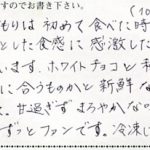 すのでお書き下さい。
(10
もりは初めて食べた時
とした食感に感激した
います。ホワイトチョコと和
に合うものかと新鮮な
た。甘過ぎずまろやかなの
ずっとファンです。冷凍し